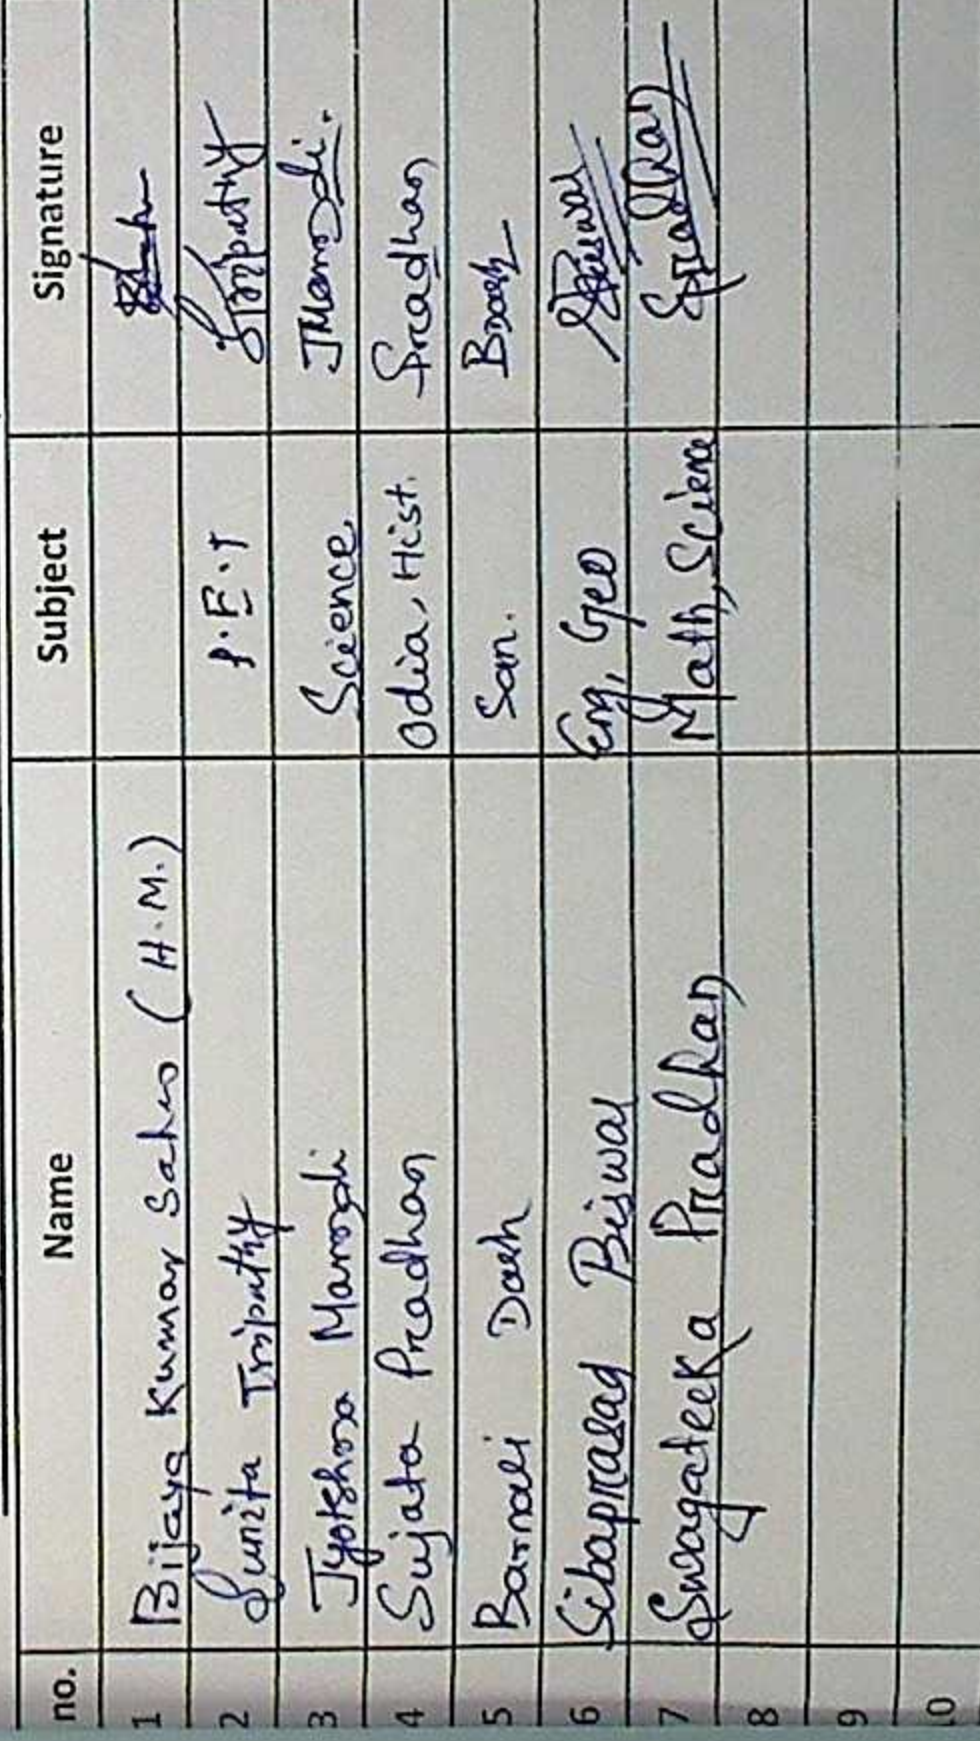 no. Name Subject Signature
1 Bijaya Kumar Sahu (H.M.)
2 Sunita Tripathy P.E.T STripathy
3 Jyotshna Marndi Science JMarndi.
4 Sujata Pradhan Odia, Hist. SPradhan
5 Barnali Dash San. BDash
6 Sibaprasad Biswal Eng, Geo SBiswal
7 Swagateeka Pradhan Math, Science Spradhan
8
9
10